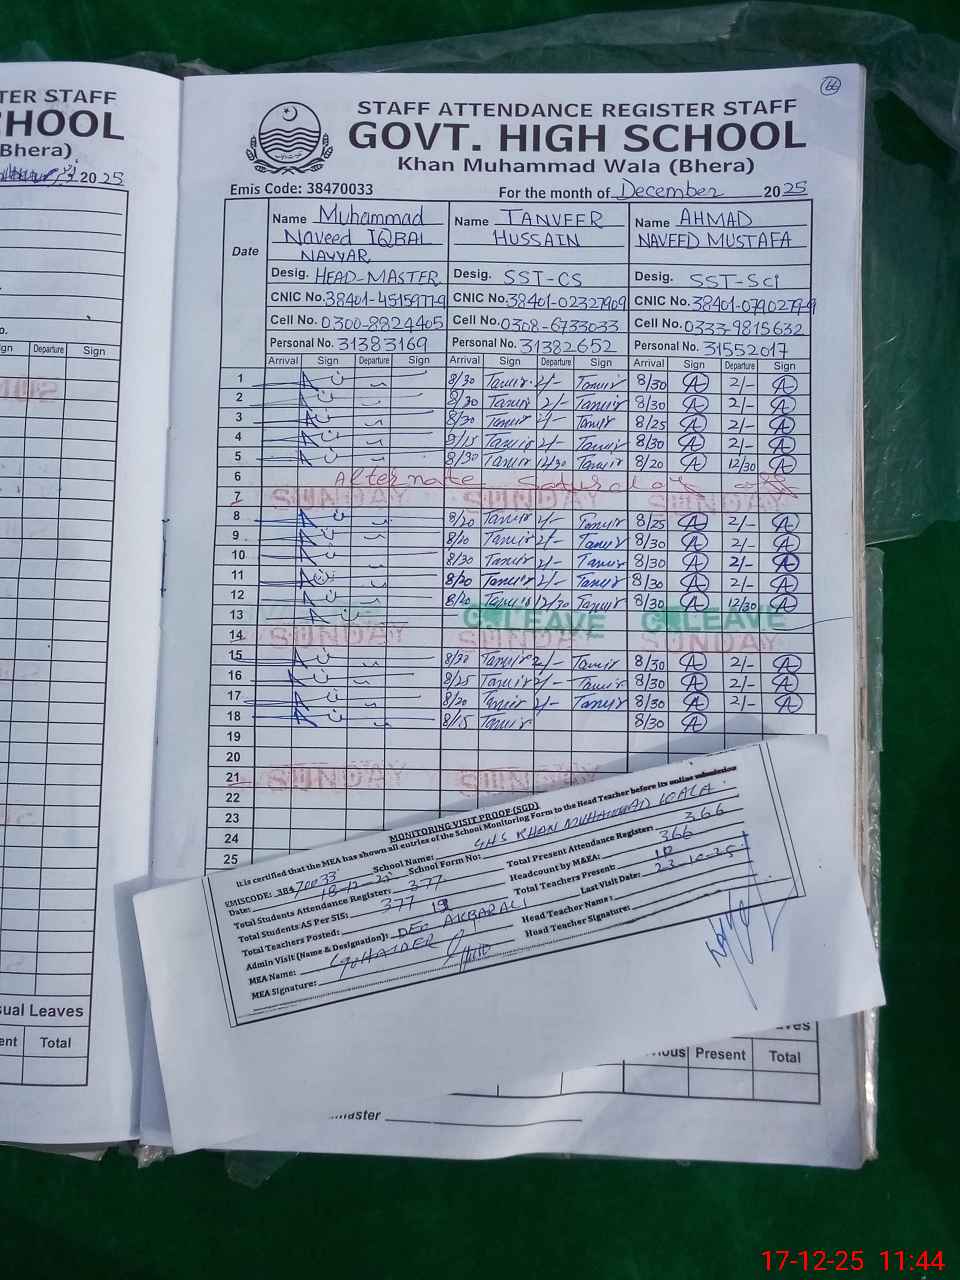 TER STAFF
CHOOL
Bhera)
20 25
sual Leaves
Total
66
STAFF ATTENDANCE REGISTER STAFF
GOVT. HIGH SCHOOL
Khan Muhammad Wala (Bhera)
Emis Code: 38470033 For the month of December 2025
Date
Name Muhammad Naveed IQBAL NAYYAR
Desig. HEAD-MASTER
CNIC No. 38401-4515977-9
Cell No. 0300-8824405
Personal No. 31383169
Name TANVEER HUSSAIN
Desig. SST-CS
CNIC No. 38401-02327909
Cell No. 0308-6733033
Personal No. 31382652
Name AHMAD NAVEED MUSTAFA
Desig. SST-Sci
CNIC No. 38401-0790279-9
Cell No. 0333-9815632
Personal No. 31552017
Arrival Sign Departure Sign Arrival Sign Departure Sign Arrival Sign Departure Sign
1 8/30 2/- 8/30 2/-
2 8/30 2/- 8/30 2/-
3 8/20 2/- 8/25 2/-
4 8/15 2/- 8/30 2/-
5 8/30 12/30 8/20 12/30
6 Alternate Saturday off
7 SUNDAY SUNDAY SUNDAY
8 8/20 2/- 8/25 2/-
9 8/20 2/- 8/30 2/-
10 8/30 2/- 8/30 2/-
11 8/20 2/- 8/30 2/-
12 8/20 12/30 8/30 12/30
13 C.LEAVE C.LEAVE
14 SUNDAY SUNDAY SUNDAY
15 8/20 2/- 8/30 2/-
16 8/25 2/- 8/30 2/-
17 8/20 2/- 8/30 2/-
18 8/15 8/30
19
20
21 SUNDAY SUNDAY
22
23
24
25
MONITORING VISIT PROOF (SGD)
It is certified that the MEA has shown all entries of the School Monitoring Form to the Head Teacher before its online submission
EMISCODE: 38470033 School Name: GHS KHAN MUHAMMAD WALA
Date: 18-12-25 School Form No:
Total Students Attendance Register: 377 Total Present Attendance Register: 366
Total Students AS Per SIS: 377 Headcount by M&EA: 366
Total Teachers Posted: 12 Total Teachers Present:
Admin Visit (Name & Designation): DEO AKBAR ALI Last Visit Date: 23-10-25
MEA Name: Head Teacher Name:
MEA Signature: Head Teacher Signature:
Present Total
17-12-25 11:44